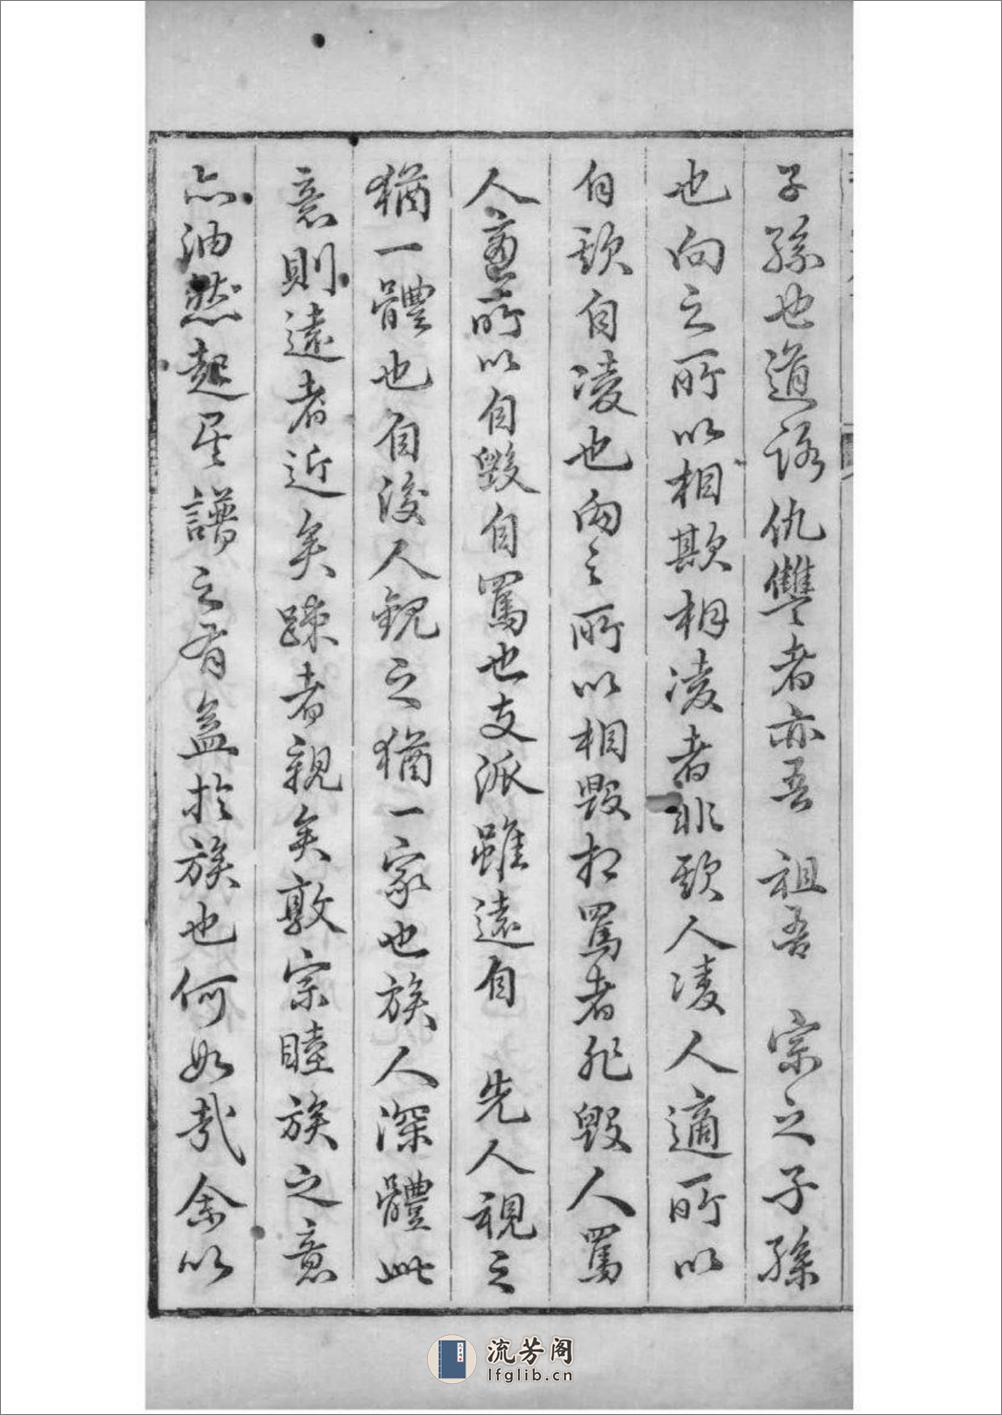 子孫也道路仇讐者亦吾 祖吾 宗之子孫
也向之所以相欺相凌者非欺人凌人適所以
自欺自凌也向之所以相毀相罵者非毀人罵
人適所以自毀自罵也支派雖遠自 先人視之
猶一體也自後人觀之猶一家也族人深體此
意則遠者近矣疎者親矣敦宗睦族之意
亦油然起矣譜之有益於族也何如哉余以
流芳阁
lfglib.cn